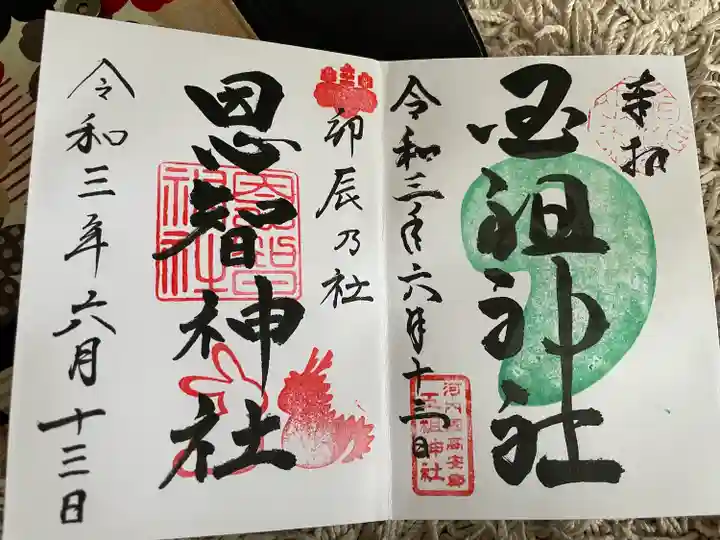 奉拝
玉祖神社
河内国高安郡
玉祖神社
令和三年六月十三日
卯辰乃社
恩智神社
恩智
神社
令和三年六月十三日